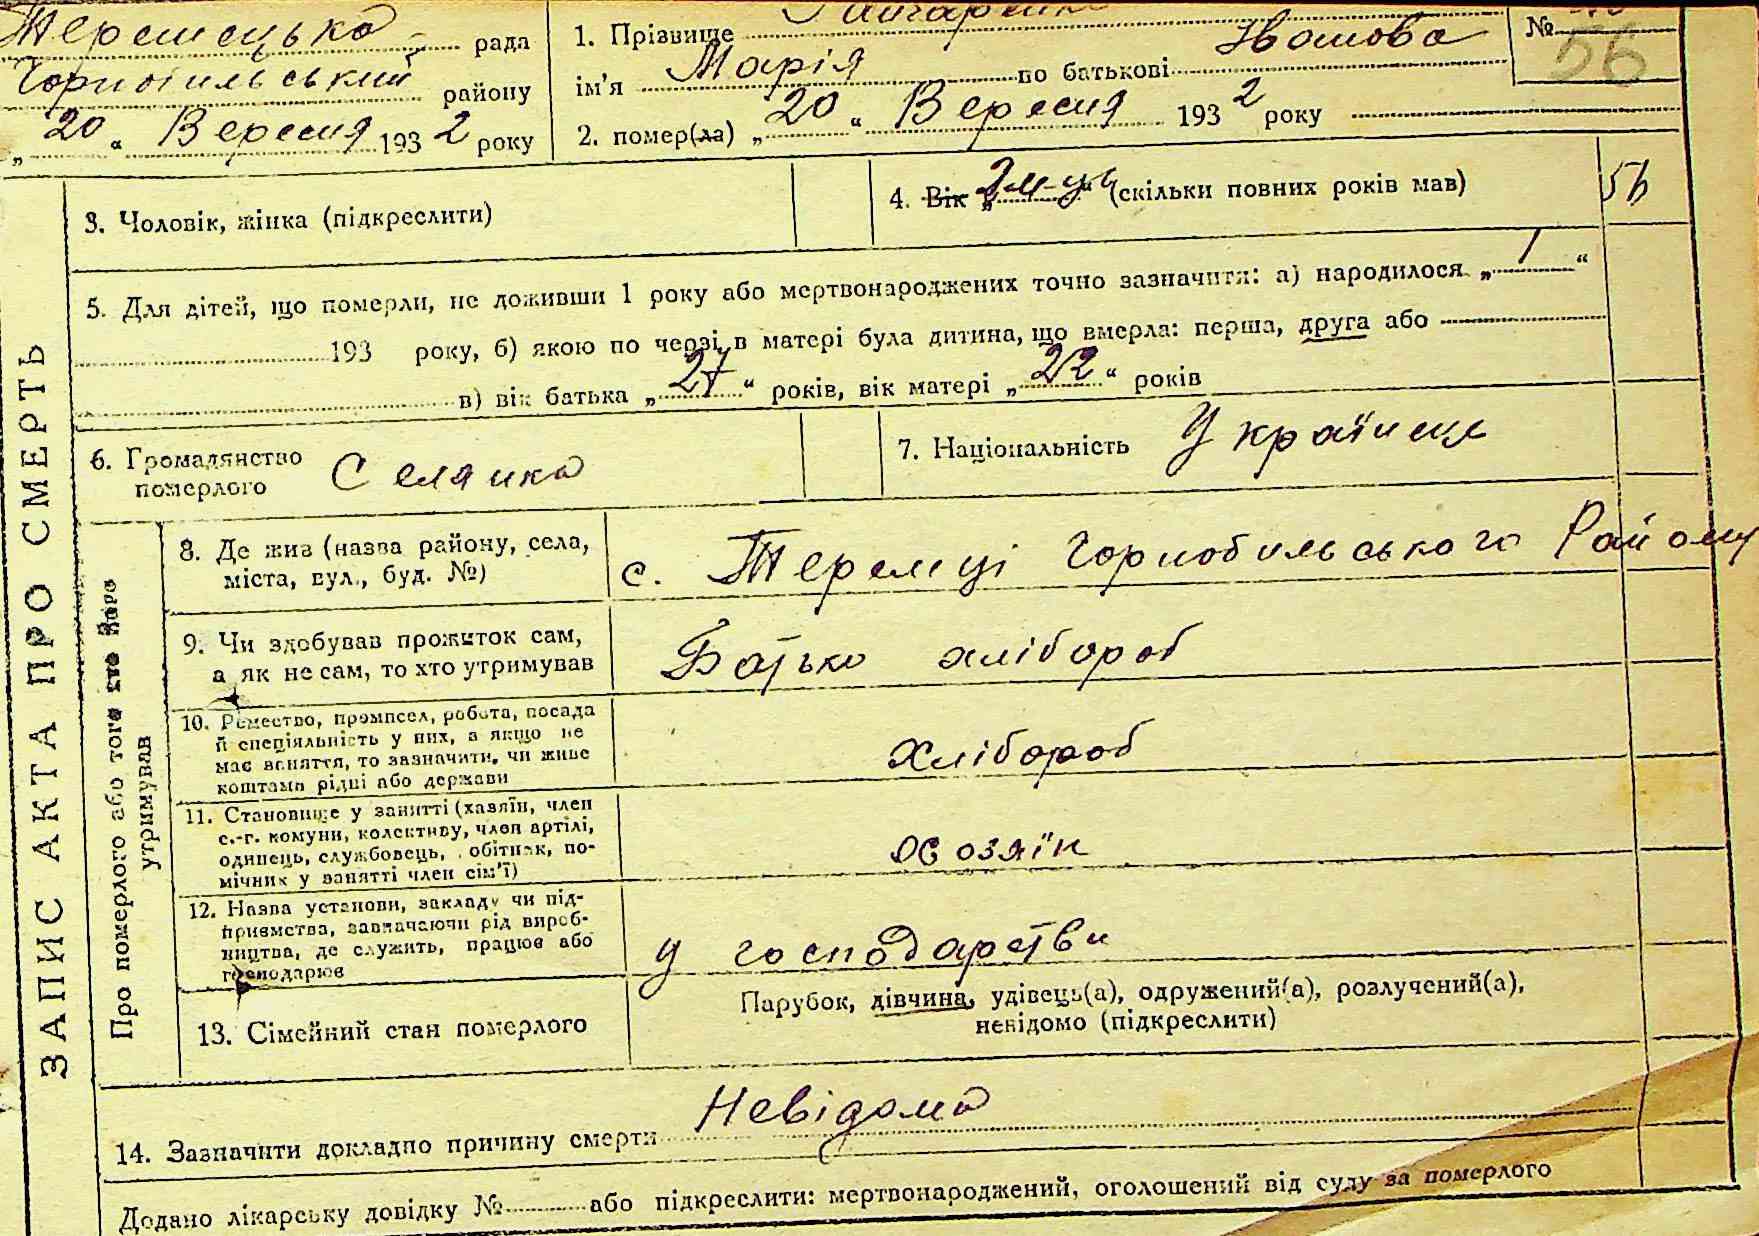 Теремецька рада
Чорнобильський району
„20“ Вересня 1932 року
1. Прізвище
ім'я Марія по батькові Іванова
2. помер(ла) „20“ Вересня 1932 року
№ 56
3. Чоловік, жінка (підкреслити)
4. Вік (скільки повних років мав)
56
5. Для дітей, що померли, не доживши 1 року або мертвонароджених точно зазначити: а) народилося „1“
193 року, б) якою по черзі в матері була дитина, що вмерла: перша, друга або
в) вік батька „27“ років, вік матері „22“ років
6. Громадянство
померлого Селянка
7. Національність Українець
ЗАПИС АКТА ПРО СМЕРТЬ
Про померлого або того хто його
утримував
8. Де жив (назва району, села,
міста, вул., буд. №)
с. Теремці Чорнобильського Району
9. Чи здобував прожиток сам,
а як не сам, то хто утримував
Батько хлібороб
10. Ремество, промисел, робота, посада
й спеціяльність у них, а якщо не
має заняття, то зазначити, чи живе
коштами рідні або держави
Хлібороб
11. Становище у занятті (хазяїн, член
с.-г. комуни, колективу, член артілі,
одинець, службовець, робітник, по-
мічник у занятті член сім'ї)
Хозяїн
12. Назва установи, закладу чи під-
приємства, зазначаючи рід вироб-
ництва, де служить, працює або
господарює
у господарстви
13. Сімейний стан померлого
Парубок, дівчина, удівець(а), одружений(а), розлучений(а),
невідомо (підкреслити)
14. Зазначити докладно причину смерти Невідома
Додано лікарську довідку № або підкреслити: мертвонароджений, оголошений від суду за померлого